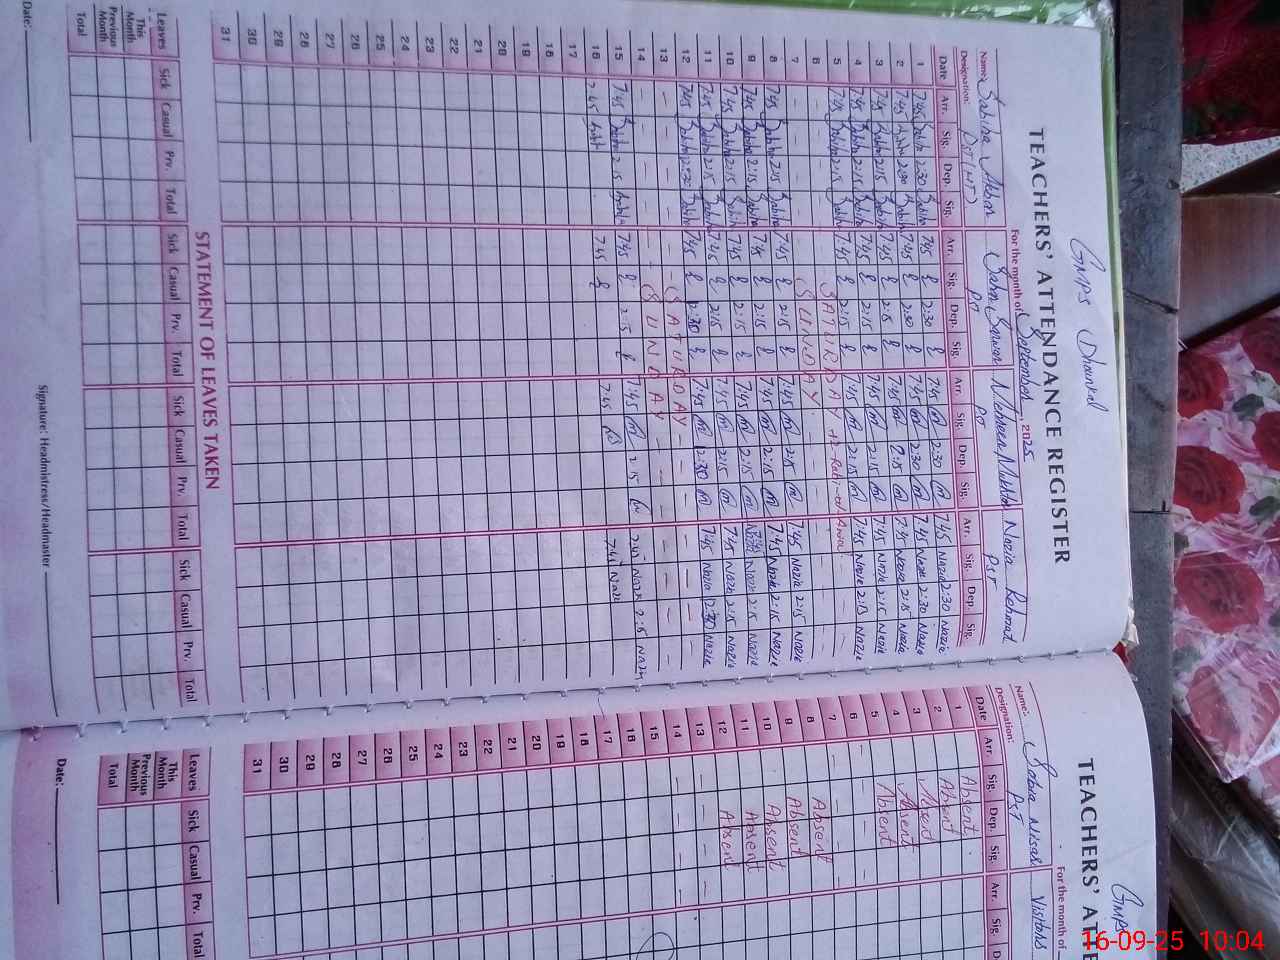 GMPS Dhounkal
TEACHERS' ATTENDANCE REGISTER
For the month of September 2025
Name: Sabiha Akbar Nazia Rehmat
Designation: PST (HT) PST PST PST
Date Arr. Sig. Dep. Sig. Arr. Sig. Dep. Sig. Arr. Sig. Dep. Sig. Arr. Sig. Dep. Sig.
1 7:45 Sabiha 2:30 Sabiha 7:45 2:30 7:45 2:30 7:45 Nazia 2:30 Nazia
2 7:45 2:30 7:45 2:30 7:45 2:30 7:45 Nazia 2:30 Nazia
3 7:45 2:15 7:45 2:15 7:45 2:15 7:45 Nazia 2:15 Nazia
4 7:45 2:15 7:45 2:15 7:45 2:15 7:45 Nazia 2:15 Nazia
5 7:45 2:15 7:45 2:15 7:45 2:15 7:45 Nazia 2:15 Nazia
6 SATURDAY
7 SUNDAY
8 7:45 Sabiha 2:15 Sabiha 7:45 2:15 7:45 2:15 7:45 Nazia 2:15 Nazia
9 7:45 Sabiha 2:15 Sabiha 7:45 2:15 7:45 2:15 7:45 Nazia 2:15 Nazia
10 7:45 Sabiha 2:15 Sabiha 7:45 2:15 7:45 2:15 Nazia 2:15 Nazia
11 7:45 Sabiha 2:15 Sabiha 7:45 2:15 7:45 2:15 7:45 Nazia 2:15 Nazia
12 7:45 Sabiha 2:30 Sabiha 7:45 2:30 7:45 2:30 7:45 Nazia 2:30 Nazia
13 SATURDAY
14 SUNDAY
15 7:45 Sabiha 2:15 Sabiha 7:45 2:15 7:45 2:15 7:45 Nazia 2:15 Nazia
16 7:45 7:45 7:45 7:45 Nazia
17
18
19
20
21
22
23
24
25
26
27
28
29
30
31
STATEMENT OF LEAVES TAKEN
Leaves Sick Casual Prv. Total Sick Casual Prv. Total Sick Casual Prv. Total Sick Casual Prv. Total
This Month
Previous Month
Total
Date: Signature: Headmistress/Headmaster
GMPS
TEACHERS' ATTE
For the month of
Name: Sobia Nisar Visitors
Designation: PST
Date Arr. Sig. Dep. Sig. Arr. Sig. Dep.
1 Absent
2 Absent
3 Absent
4 Absent
5 Absent
6
7
8 Absent
9 Absent
10 Absent
11 Absent
12 Absent
13
14
15
16
17
18
19
20
21
22
23
24
25
26
27
28
29
30
31
Leaves Sick Casual Prv. Total
This Month
Previous Month
Total
Date:
16-09-25 10:04